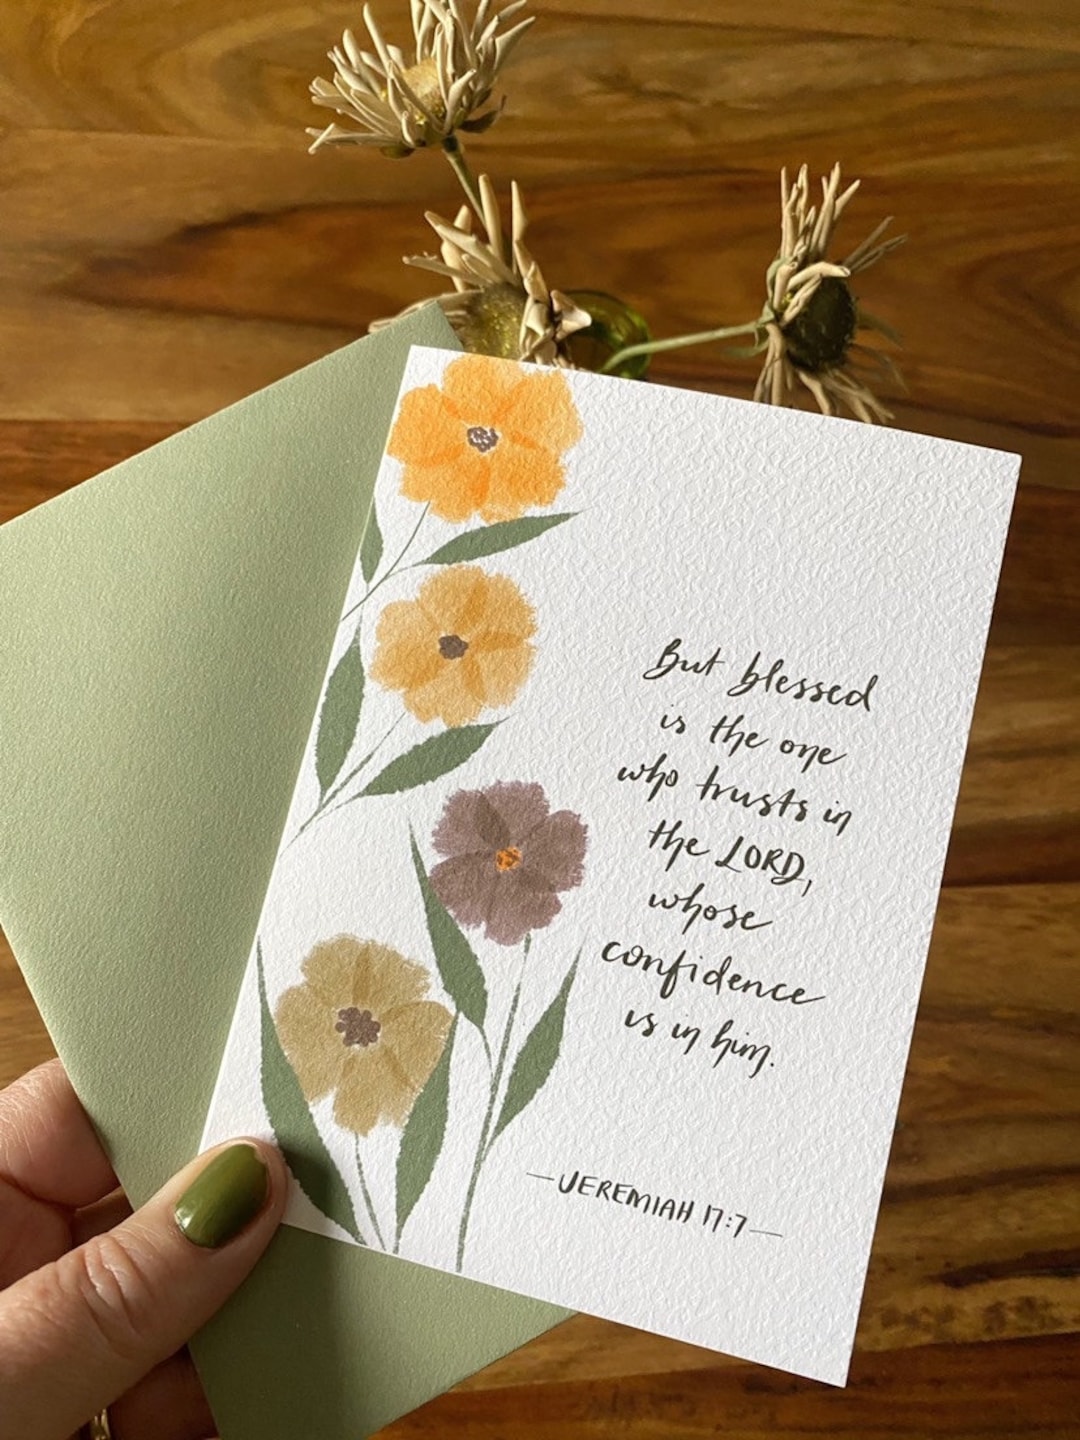 But blessed
is the one
who trusts in
the LORD,
whose
confidence
is in him.
—JEREMIAH 17:7—